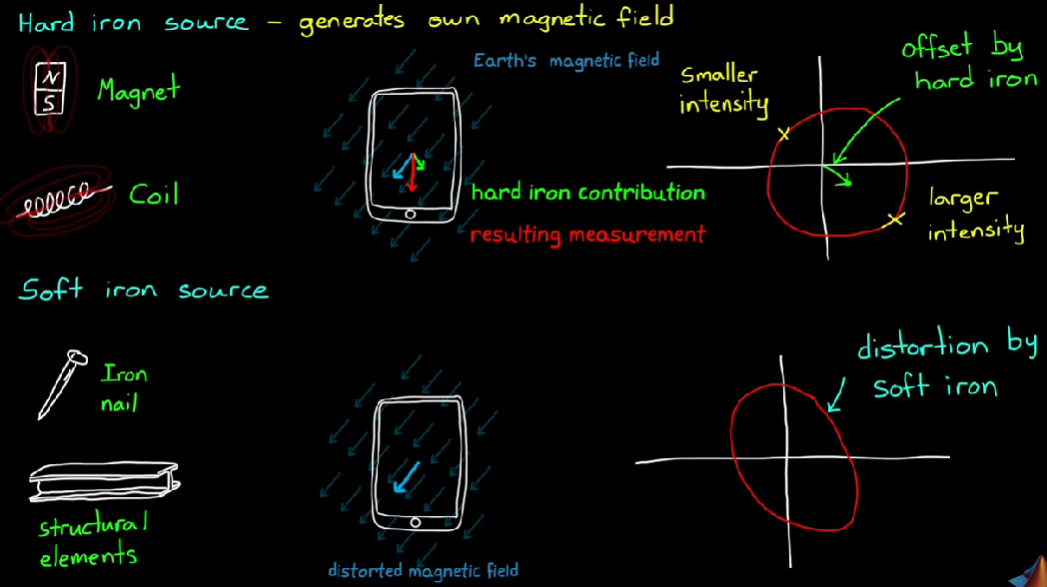 Hard iron source – generates own magnetic field
N
S
Magnet
Coil
Earth's magnetic field
hard iron contribution
resulting measurement
smaller
intensity
offset by
hard iron
larger
intensity
Soft iron source
Iron
nail
structural
elements
distorted magnetic field
distortion by
soft iron